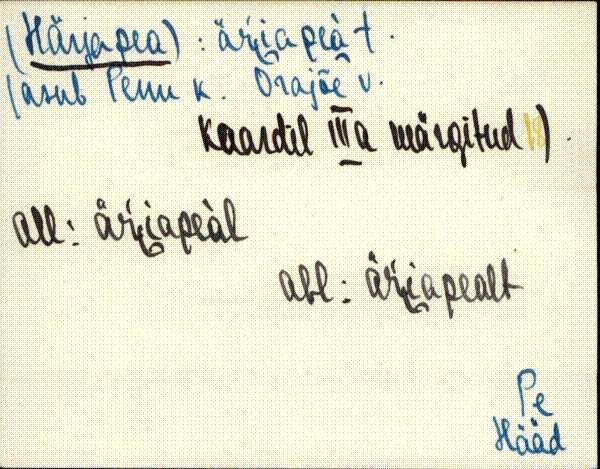 (Härjapea) : är'i̯apeàt.
(asub Penu k. Orajõe v.
Kaardil IIIa märgitud 18).
all: är'i̯apeàl
abl: är'i̯apealt
Pe
Hääd